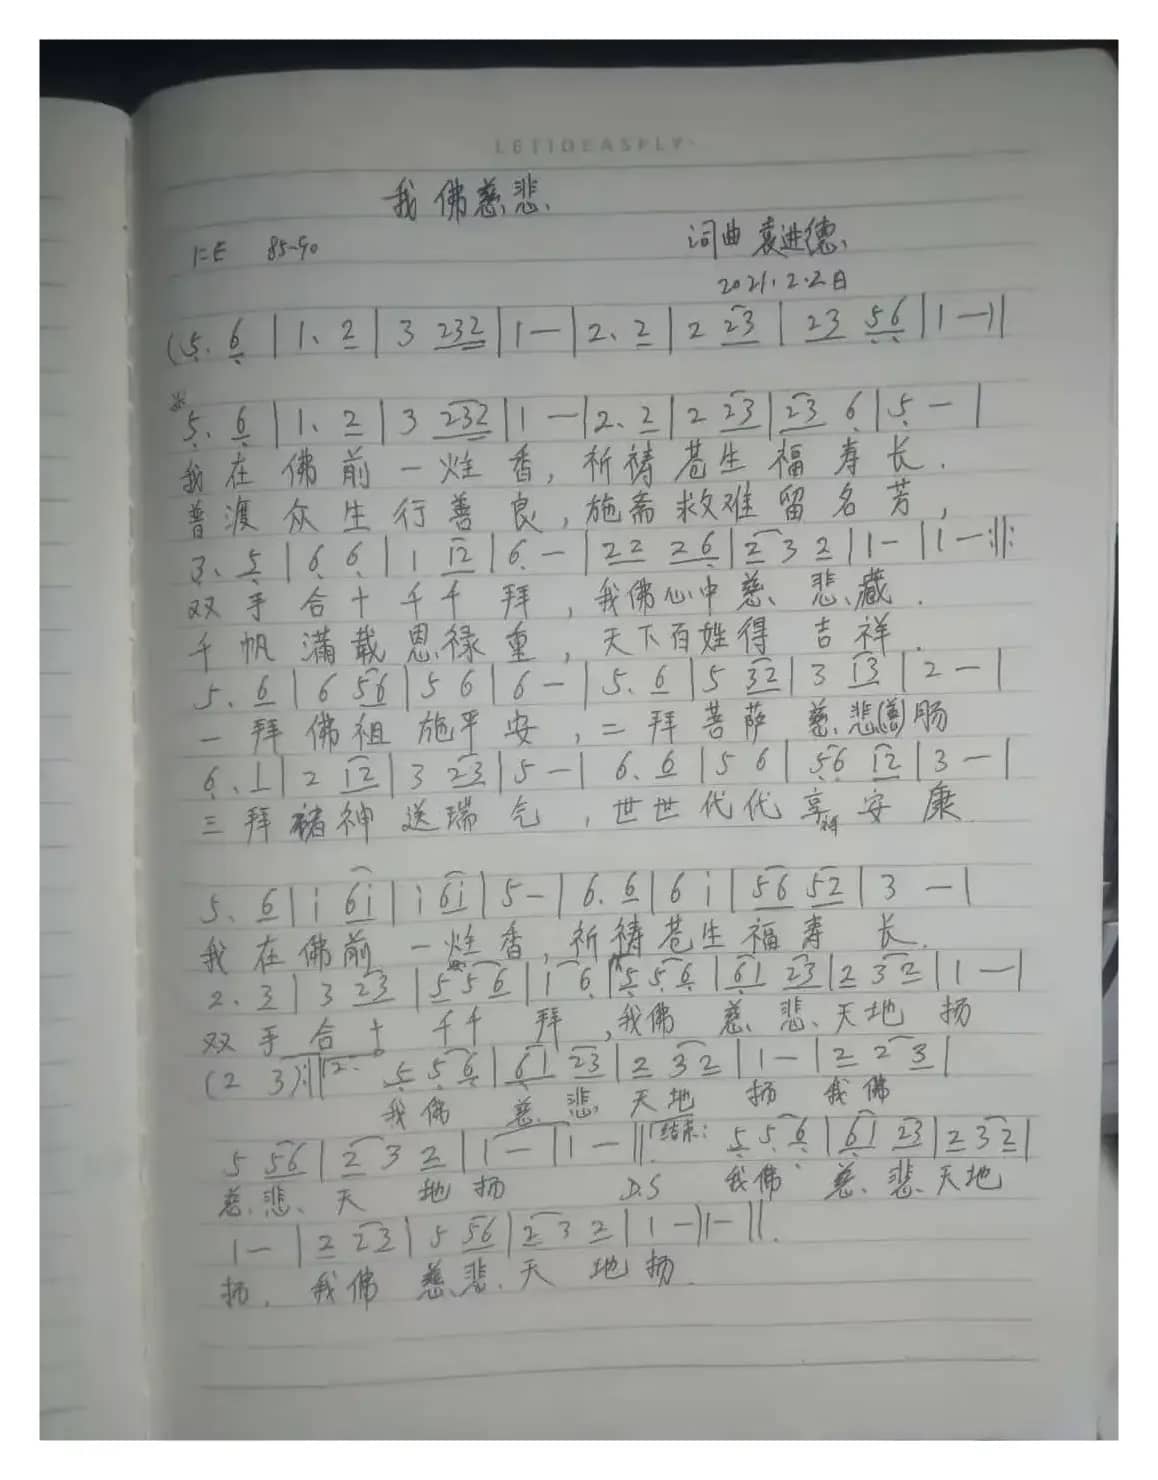 LETIDEASFLY
我佛慈悲
1=E 85-90 词曲 袁进德
2021.2.2日
(5. 6 | 1. 2 | 3 232 | 1 — | 2. 2 | 2 23 | 23 56 | 1 —) |
※
5. 6 | 1. 2 | 3 232 | 1 — | 2. 2 | 2 23 | 23 6 | 5 — |
我在佛前一炷香,祈祷苍生福寿长.
普渡众生行善良,施斋救难留名芳,
3. 5 | 6 6 | 1 12 | 6 — | 22 26 | 2 3 2 | 1 — | 1 — :||:
双手合十千千拜,我佛心中慈悲藏.
千帆满载恩禄重,天下百姓得吉祥.
5. 6 | 6 56 | 5 6 | 6 — | 5. 6 | 5 32 | 3 13 | 2 — |
一拜佛祖施平安,二拜菩萨慈悲(善)肠
6. 1 | 2 12 | 3 23 | 5 — | 6. 6 | 5 6 | 56 12 | 3 — |
三拜诸神送瑞气,世世代代享安康
5. 6 | i 6i | i 6i | 5 — | 6. 6 | 6 i | 56 52 | 3 — |
我在佛前一炷香,祈祷苍生福寿长.
2. 3 | 3 23 | 5 5 6 | 1 6 | 5 5 6 | 61 23 | 2 3 2 | 1 — |
双手合十千千拜,我佛慈悲天地扬
(2 3) :|| 2. 5 5 6 | 61 23 | 2 3 2 | 1 — | 2 2 3 |
我佛慈悲天地扬我佛
5 56 | 2 3 2 | 1 — | 1 — || 结束: 5 5 6 | 61 23 | 2 3 2 |
慈悲天地扬 D.S 我佛慈悲天地
1 — | 2 23 | 5 56 | 2 3 2 | 1 — | 1 — ||
扬.我佛慈悲天地扬.